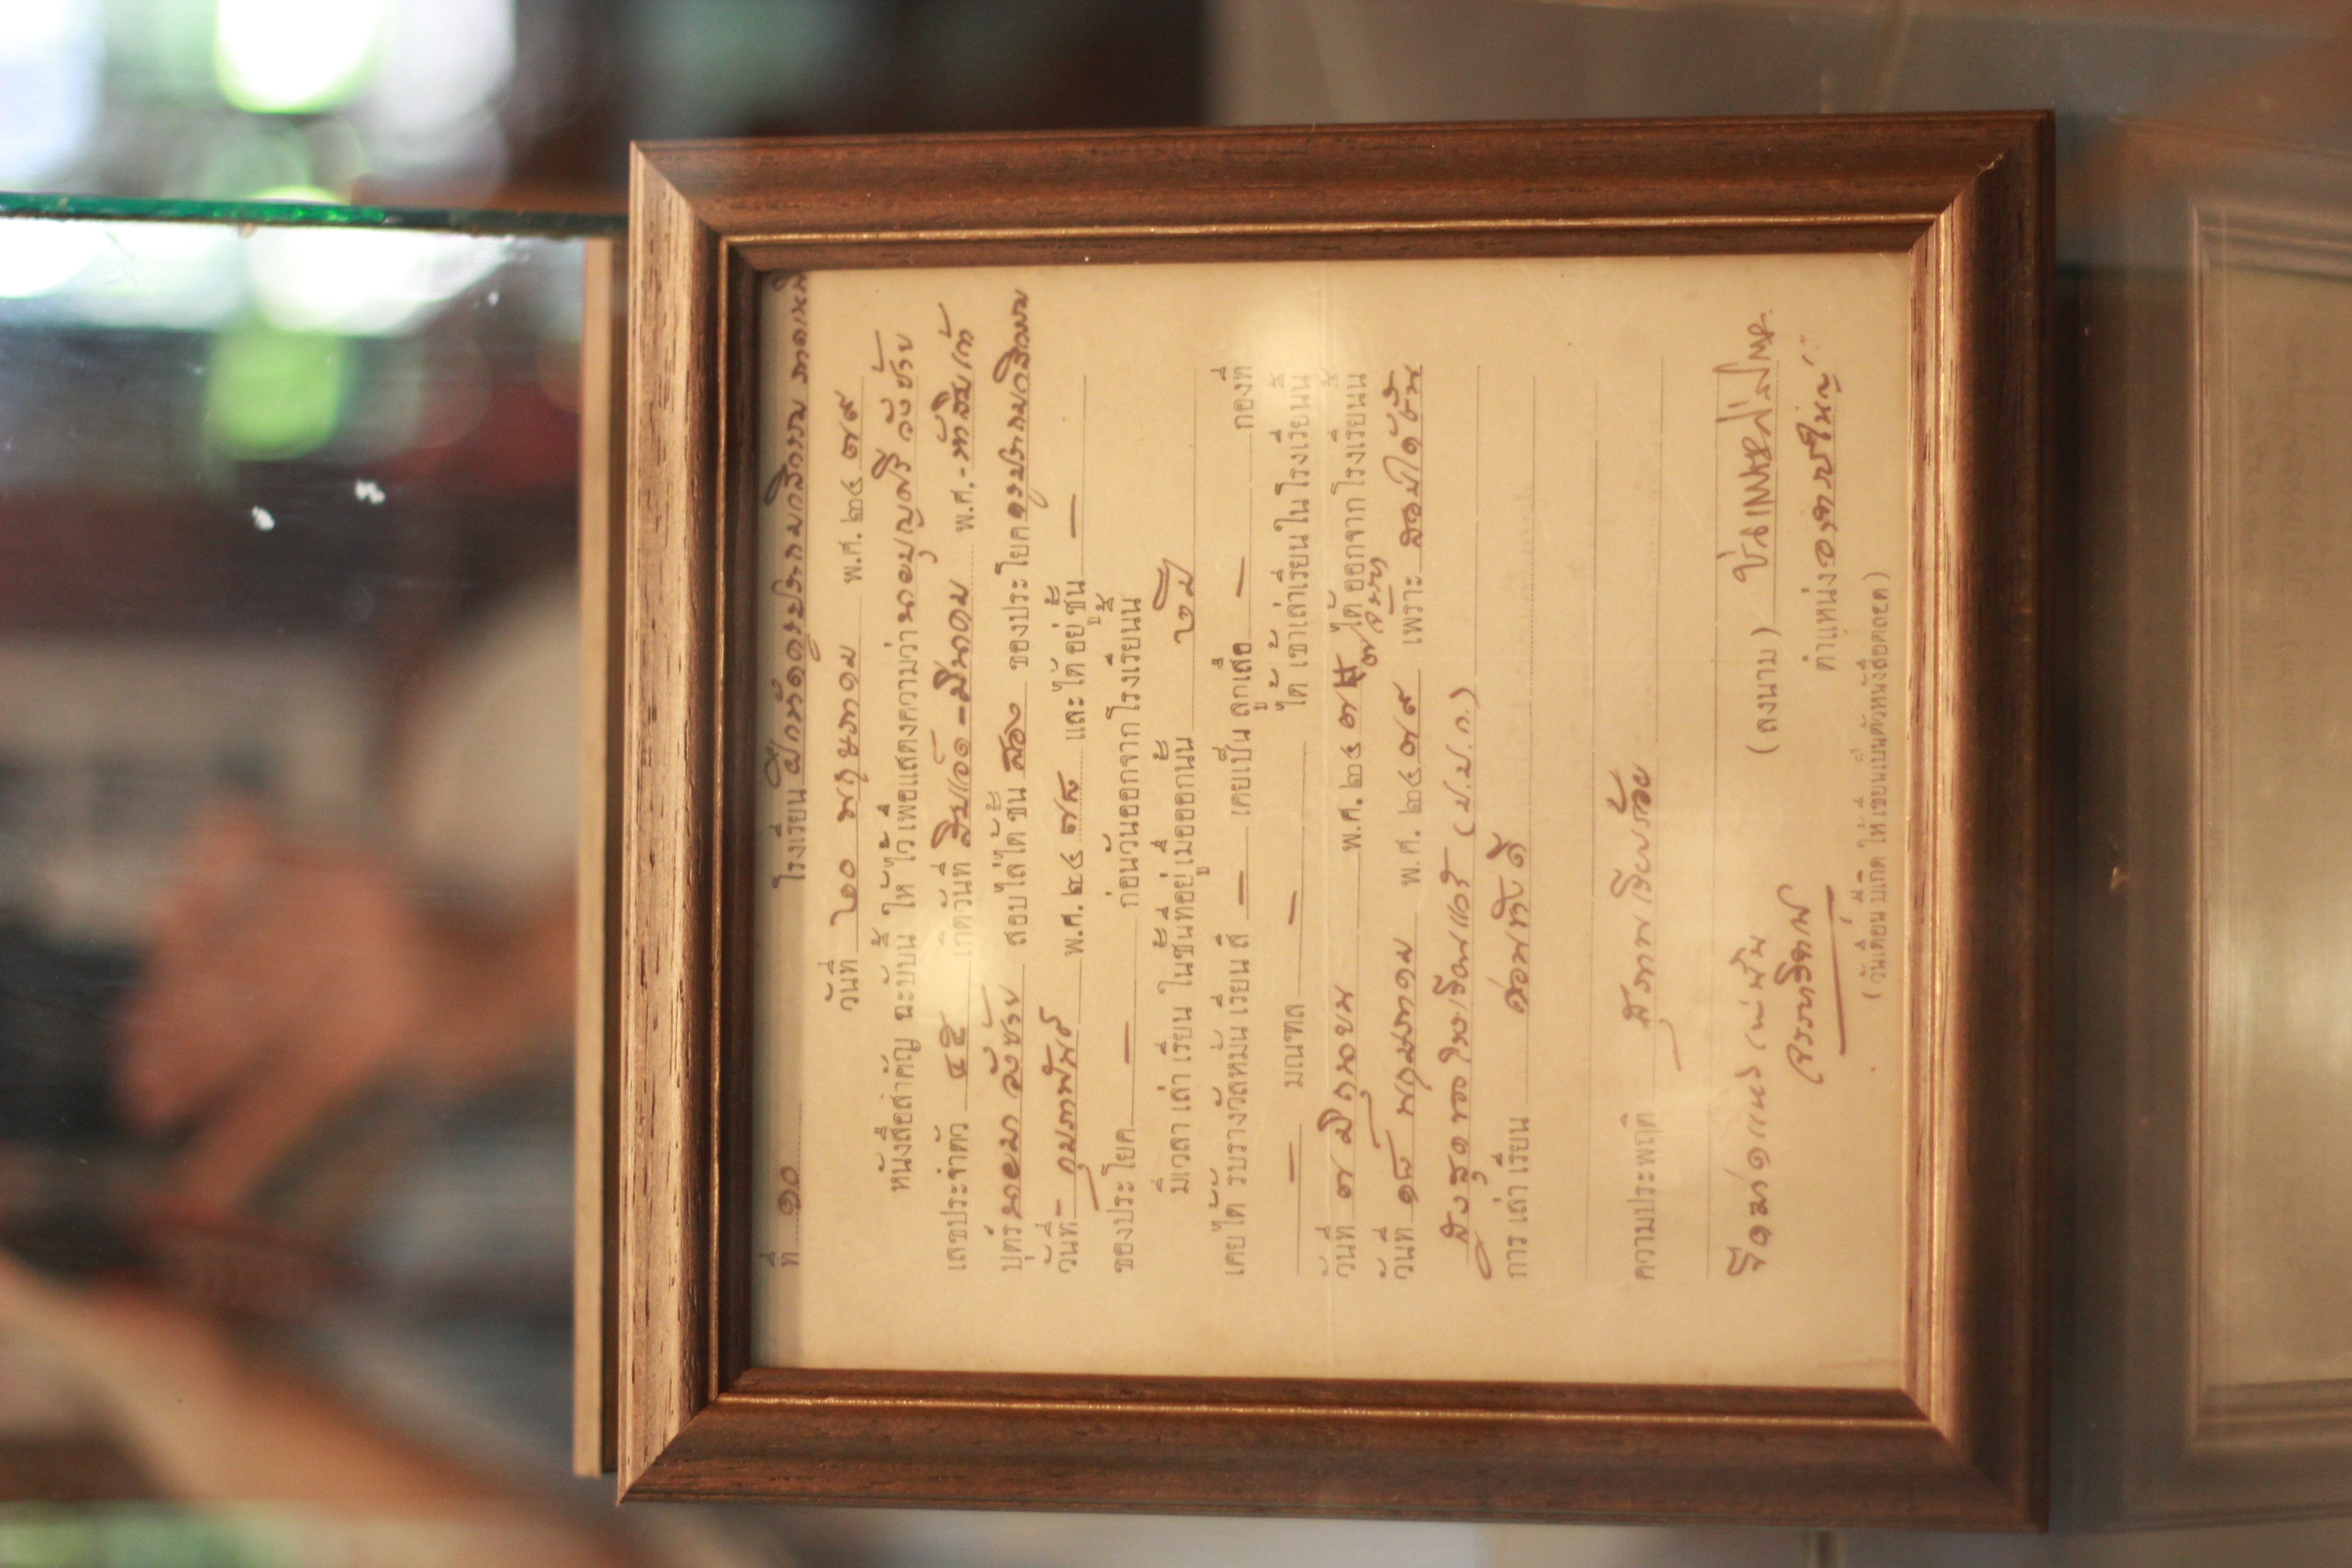 ที่ ๑๐ โรงเรียน ฝึกหัดครูประถมกสิกรรม
วันที่ ๒๐ พฤษภาคม พ.ศ. ๒๔๗๙
หนังสือสำคัญ ฉะบับนี้ ให้ไว้เพื่อแสดงความว่า นายบุญศรี วังซ้าย
เลขประจำตัว ๔๕ เกิดวันที่ สิบเอ็ด - มีนาคม พ.ศ. -
บุตร์ นายมา วังซ้าย สอบไล่ได้ชั้น สอง ของประโยค ครูประถมกสิกรรม
วันที่ - กุมภาพันธ์ พ.ศ. ๒๔๗๘ และได้อยู่ชั้น —
ของประโยค — ก่อนวันออกจากโรงเรียนนี้
มีเวลาเล่าเรียน ในชั้นที่อยู่เมื่อออกนั้น ๒ ปี
เคยได้รับรางวัลหมั่นเรียนสี — เคยเป็นลูกเสือ — กองที่
— มณฑล — ได้เข้าเล่าเรียนในโรงเรียนนี้
วันที่ ๗ มิถุนายน พ.ศ. ๒๔๗๗ ได้ออกจากโรงเรียนนี้
วันที่ ๑๘ พฤษภาคม พ.ศ. ๒๔๗๙ เพราะ สอบได้ชั้น
สูงสุดของโรงเรียนแล้ว (ป.ป.ก.)
การเล่าเรียน ค่อนข้างดี
ความประพฤติ สุภาพเรียบร้อย
(ลงนาม)
ตำแหน่ง อาจารย์ใหญ่
(วันเดือนปีเกิด ให้เขียนเป็นตัวหนังสือตลอด)